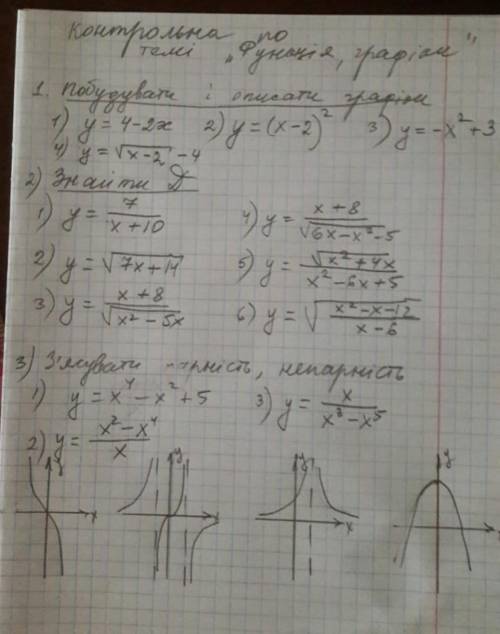 Контрольна по
темі „Функція, графіки"
1. Побудувати і описати графіки
1) y = 4-2x 2) y = (x-2)² 3) y = -x²+3
4) y = √(x-2) - 4
2) Знайти D
1) y = 7/(x+10) 4) y = (x+8)/√(6x-x²-5)
2) y = √(7x+14) 5) y = √(x²+4x)/(x²-6x+5)
3) y = (x+8)/√(x²-5x) 6) y = √((x²-x-12)/(x-6))
3) З'ясувати парність, непарність
1) y = x⁴-x²+5 3) y = x/(x³-x⁵)
2) y = (x²-x⁴)/x
y y y y
x x x x